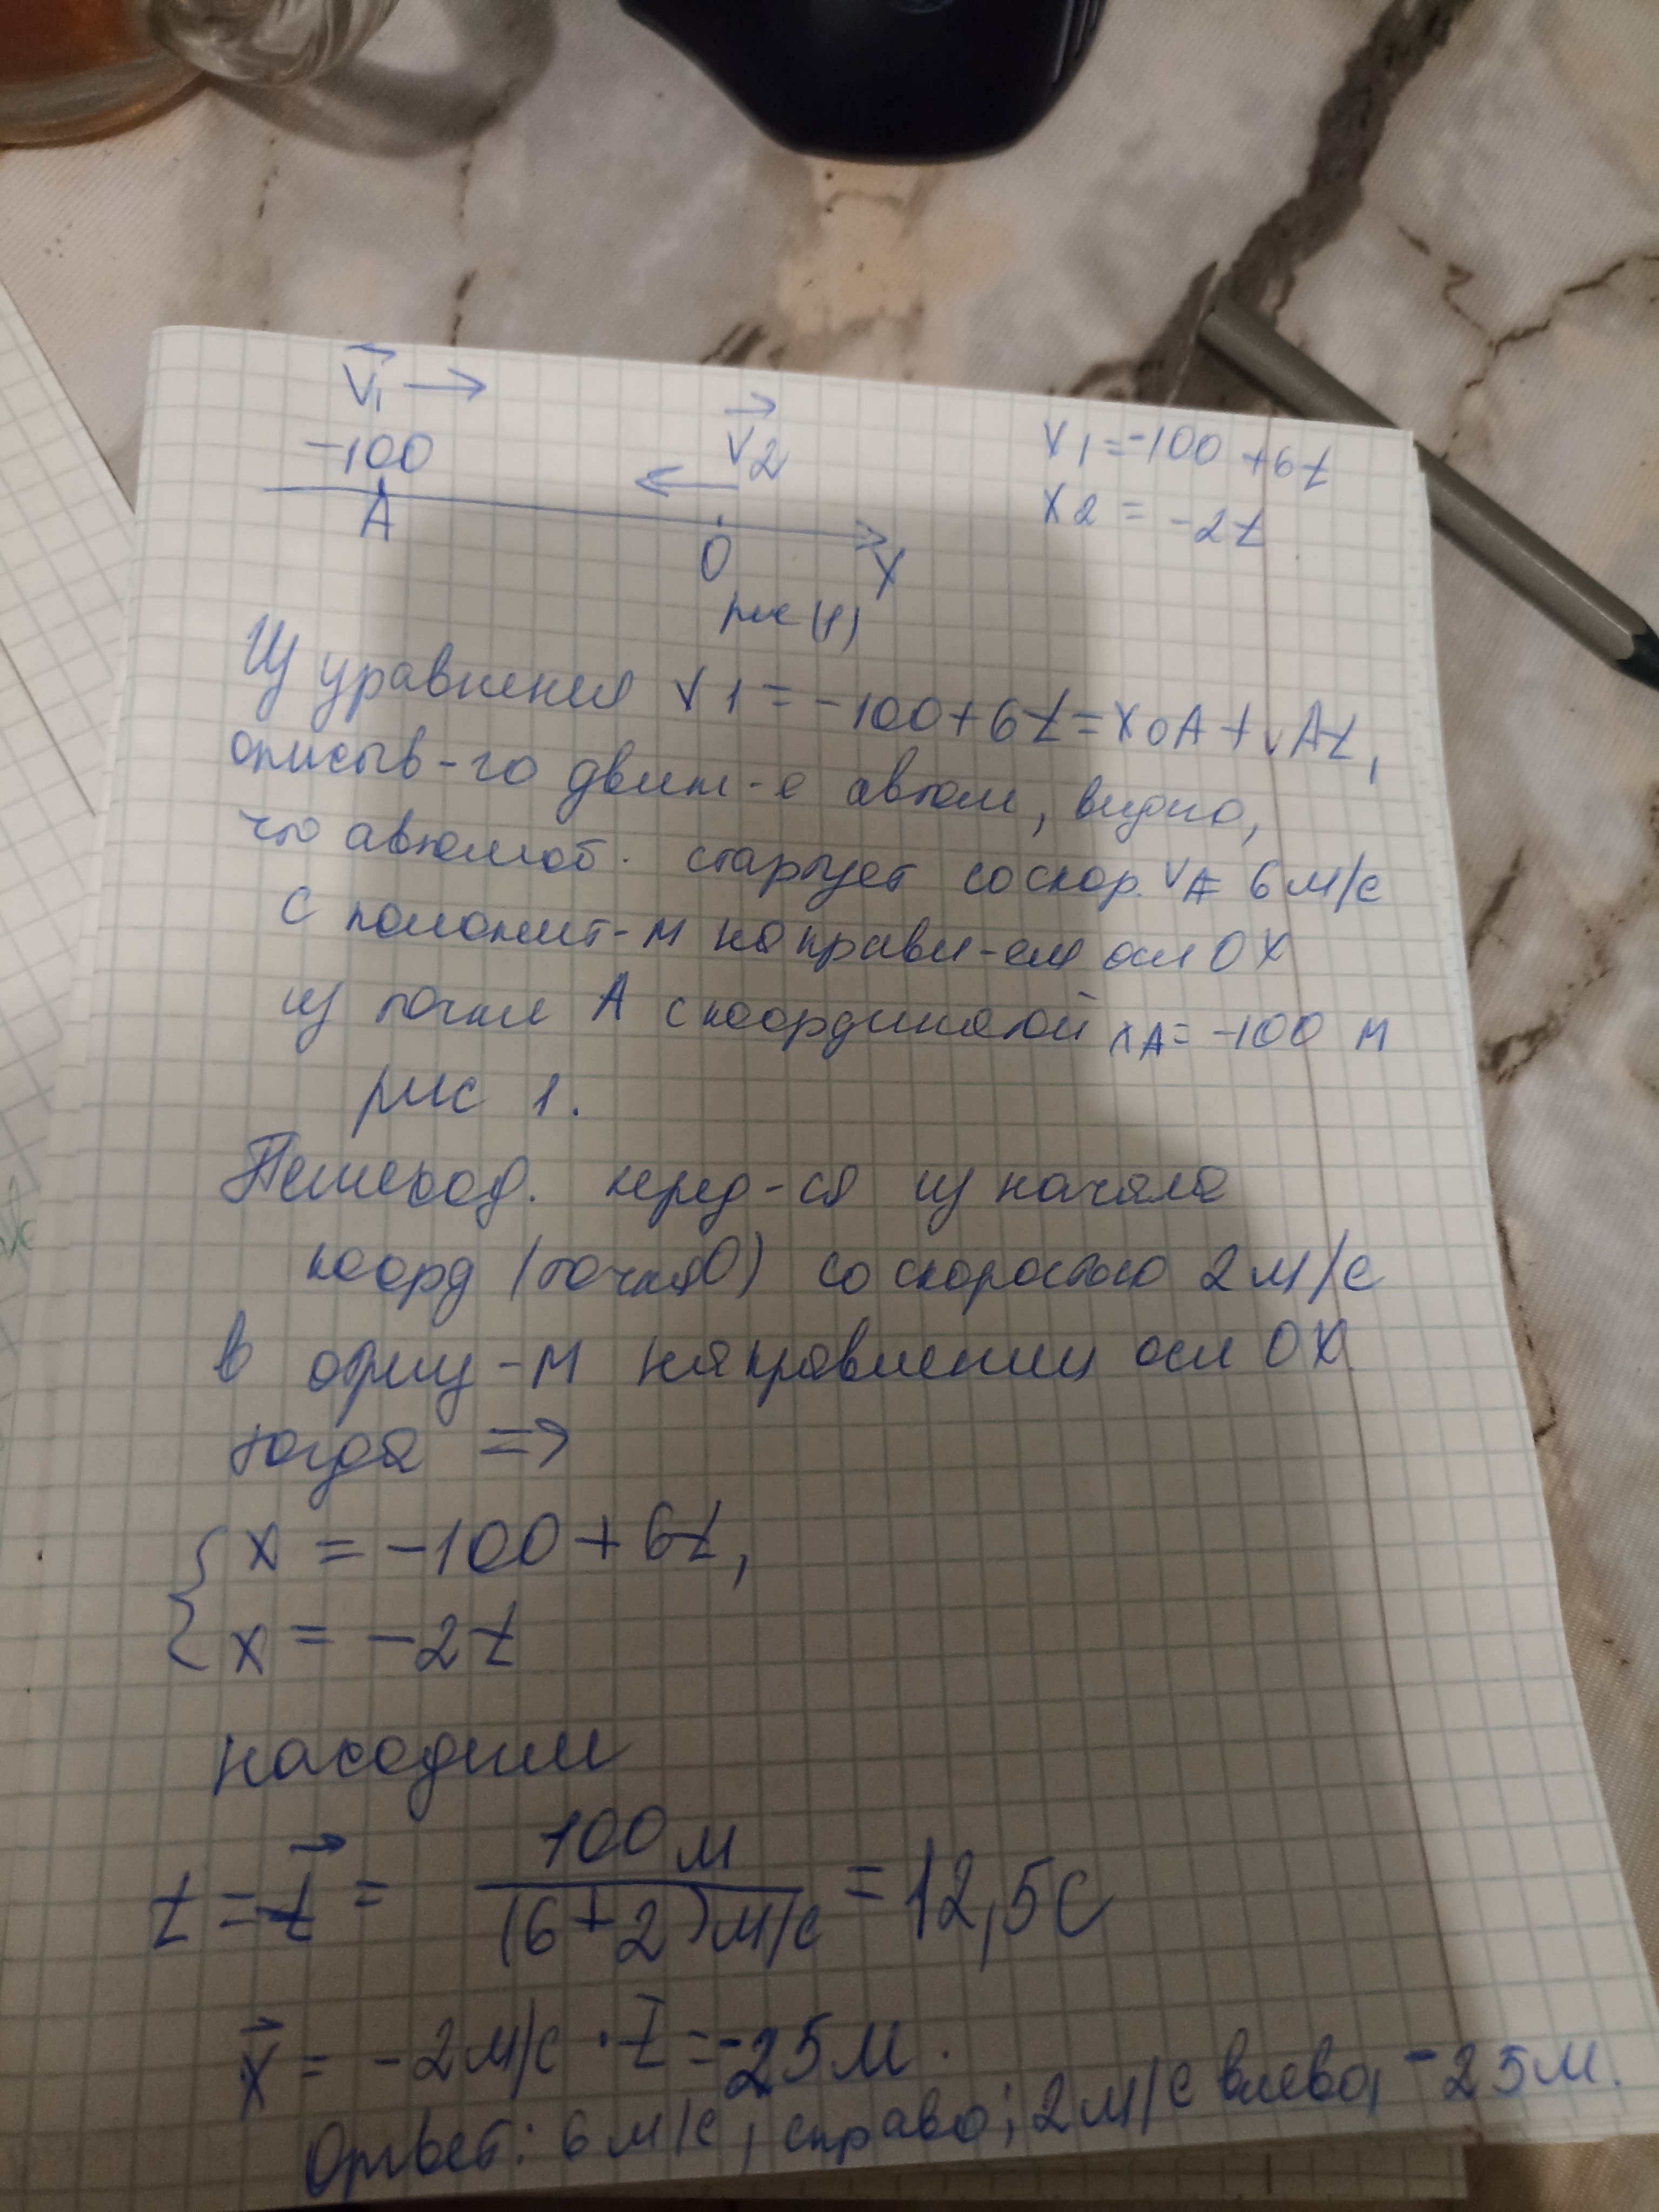 V₁ →
-100
V₂
←
A
O
X
рис (1)
x1 = -100 + 6t
x2 = -2t
Из уравнения x1 = -100 + 6t = x0A + vAt,
описыв-го движ-е автом, видно,
что автомоб. стартует со скор. vA = 6 м/с
с положит-м направл-ем оси OX
из точки A с координатой xA = -100 м
рис 1.
Пешеход. перед-ся из начала
коорд (точка O) со скоростью 2 м/с
в отриц-м направлении оси OX
тогда =>
{ x = -100 + 6t,
x = -2t
находим
t = t = 100 м / (6 + 2) м/с = 12,5 с
x = -2 м/с · t = -25 м.
Ответ: 6 м/с, справо; 2 м/с влево, -25 м.